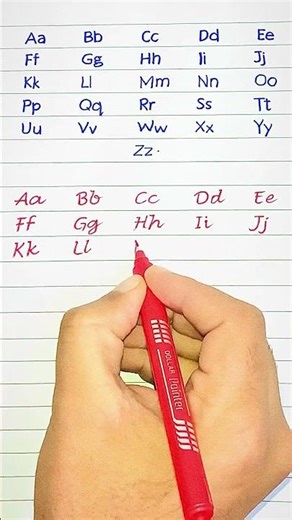 Aa Bb Cc Dd Ee
Ff Gg Hh Ii Jj
Kk Ll Mm Nn Oo
Pp Qq Rr Ss Tt
Uu Vv Ww Xx Yy
Zz.
Aa Bb Cc Dd Ee
Ff Gg Hh Ii Jj
Kk Ll
DOLLAR Pointer